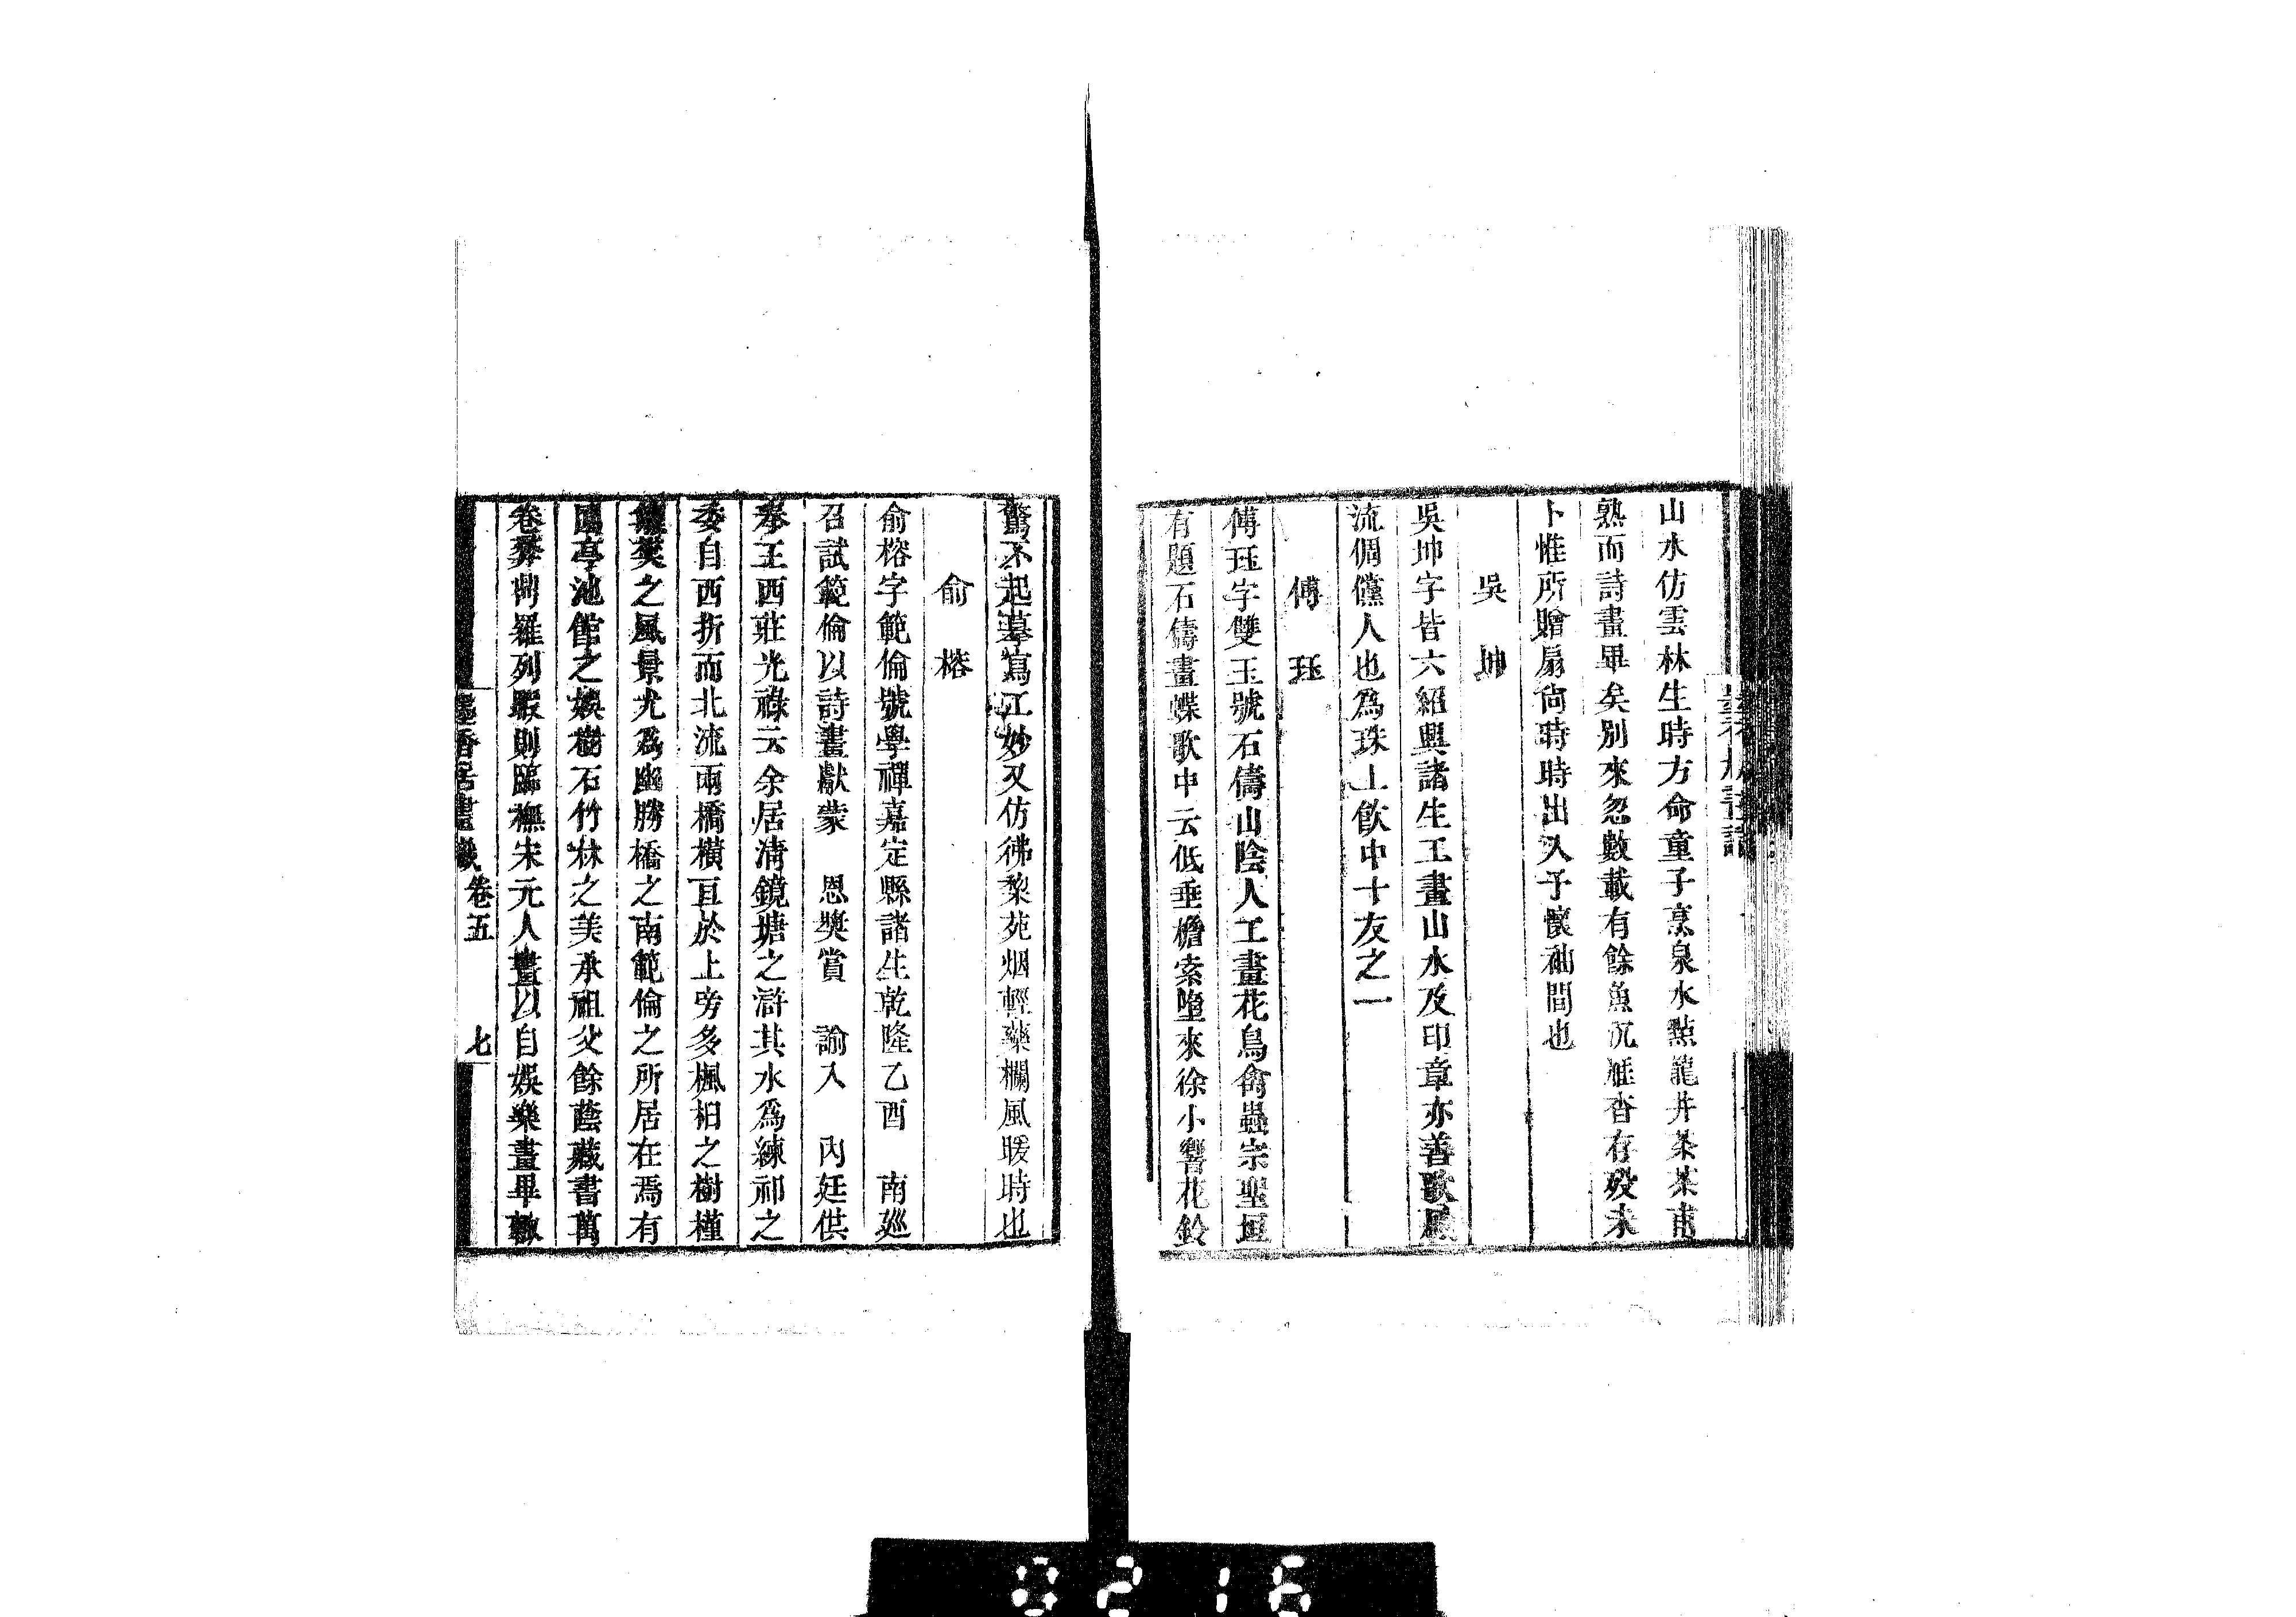 山水仿雲林生時方命童子烹泉水點龍井茶茶甫
熟而詩畫畢矣別來忽數載有餘魚沉雁杳存歿未
卜惟所贈扇尙時時出入予懷袖間也
吳坤
吳坤字皆六紹興諸生工畫山水及印章亦善歌風
流倜儻人也爲珠上飮中十友之一
傅珏
傅珏字雙玉號石儔山陰人工畫花鳥禽蟲宗聖垣
有題石儔畫蝶歌中云低垂檐索墮來徐小響花鈴
驚不起摹寫工妙又仿彿棃苑烟輕藥欄風暖時也
俞榕
俞榕字範倫號學禪嘉定縣諸生乾隆乙酉 南廵
召試範倫以詩畫獻蒙 恩奬賞 諭入 內廷供
奉王西莊光祿云余居淸鏡塘之滸其水爲練祁之
委自西折而北流兩橋橫亘於上旁多楓桕之樹槿
之風景尤爲幽勝橋之南範倫之所居在焉有
亭池館之娛樹石竹林之美承祖父餘蔭藏書萬
卷彝鼎羅列暇則臨橅宋元人畫以自娛樂畫畢輙
墨香居畫識 卷五 七
0216